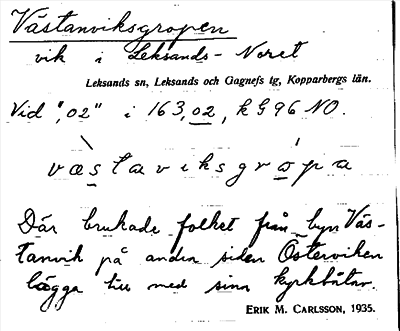 Västanviksgropen
vik i Leksands-Noret
Leksands sn, Leksands och Gagnefs tg, Kopparbergs län.
Vid ",02" i 163,02, k G 96 NO.
væstaviksgropa
Där brukade folket från byn Väs-
tanvik på andra sidan Österviken
lägga till med sina kyrkbåtar.
ERIK M. CARLSSON, 1935.